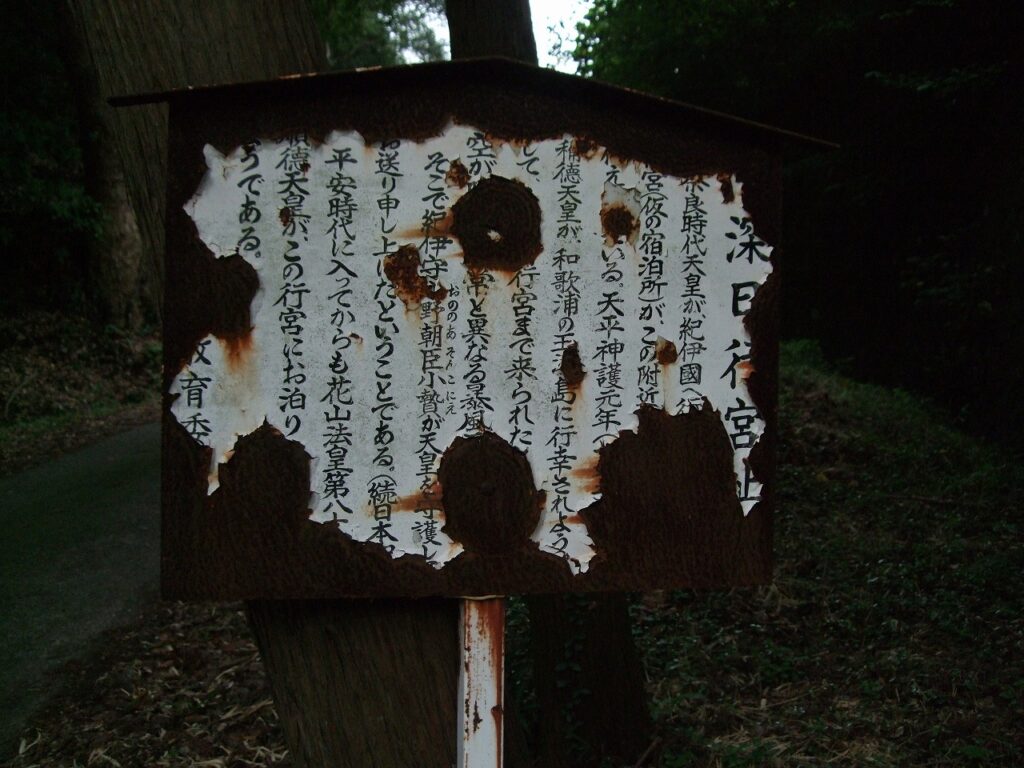 深日行宮址
奈良時代天皇が紀伊國行
宮(仮の宿泊所)がこの附近
えいる。天平神護元年(
称徳天皇が、和歌浦の玉津島に行幸されよう
して、行宮まで来られた
空が常と異なる暴風
そこで紀伊守小野朝臣小贄が天皇を守護し
おののあそんこにえ
お送り申し上げたということである。(続日本
平安時代に入ってからも花山法皇第八十
順徳天皇が、この行宮にお泊り
ようである。
教育委